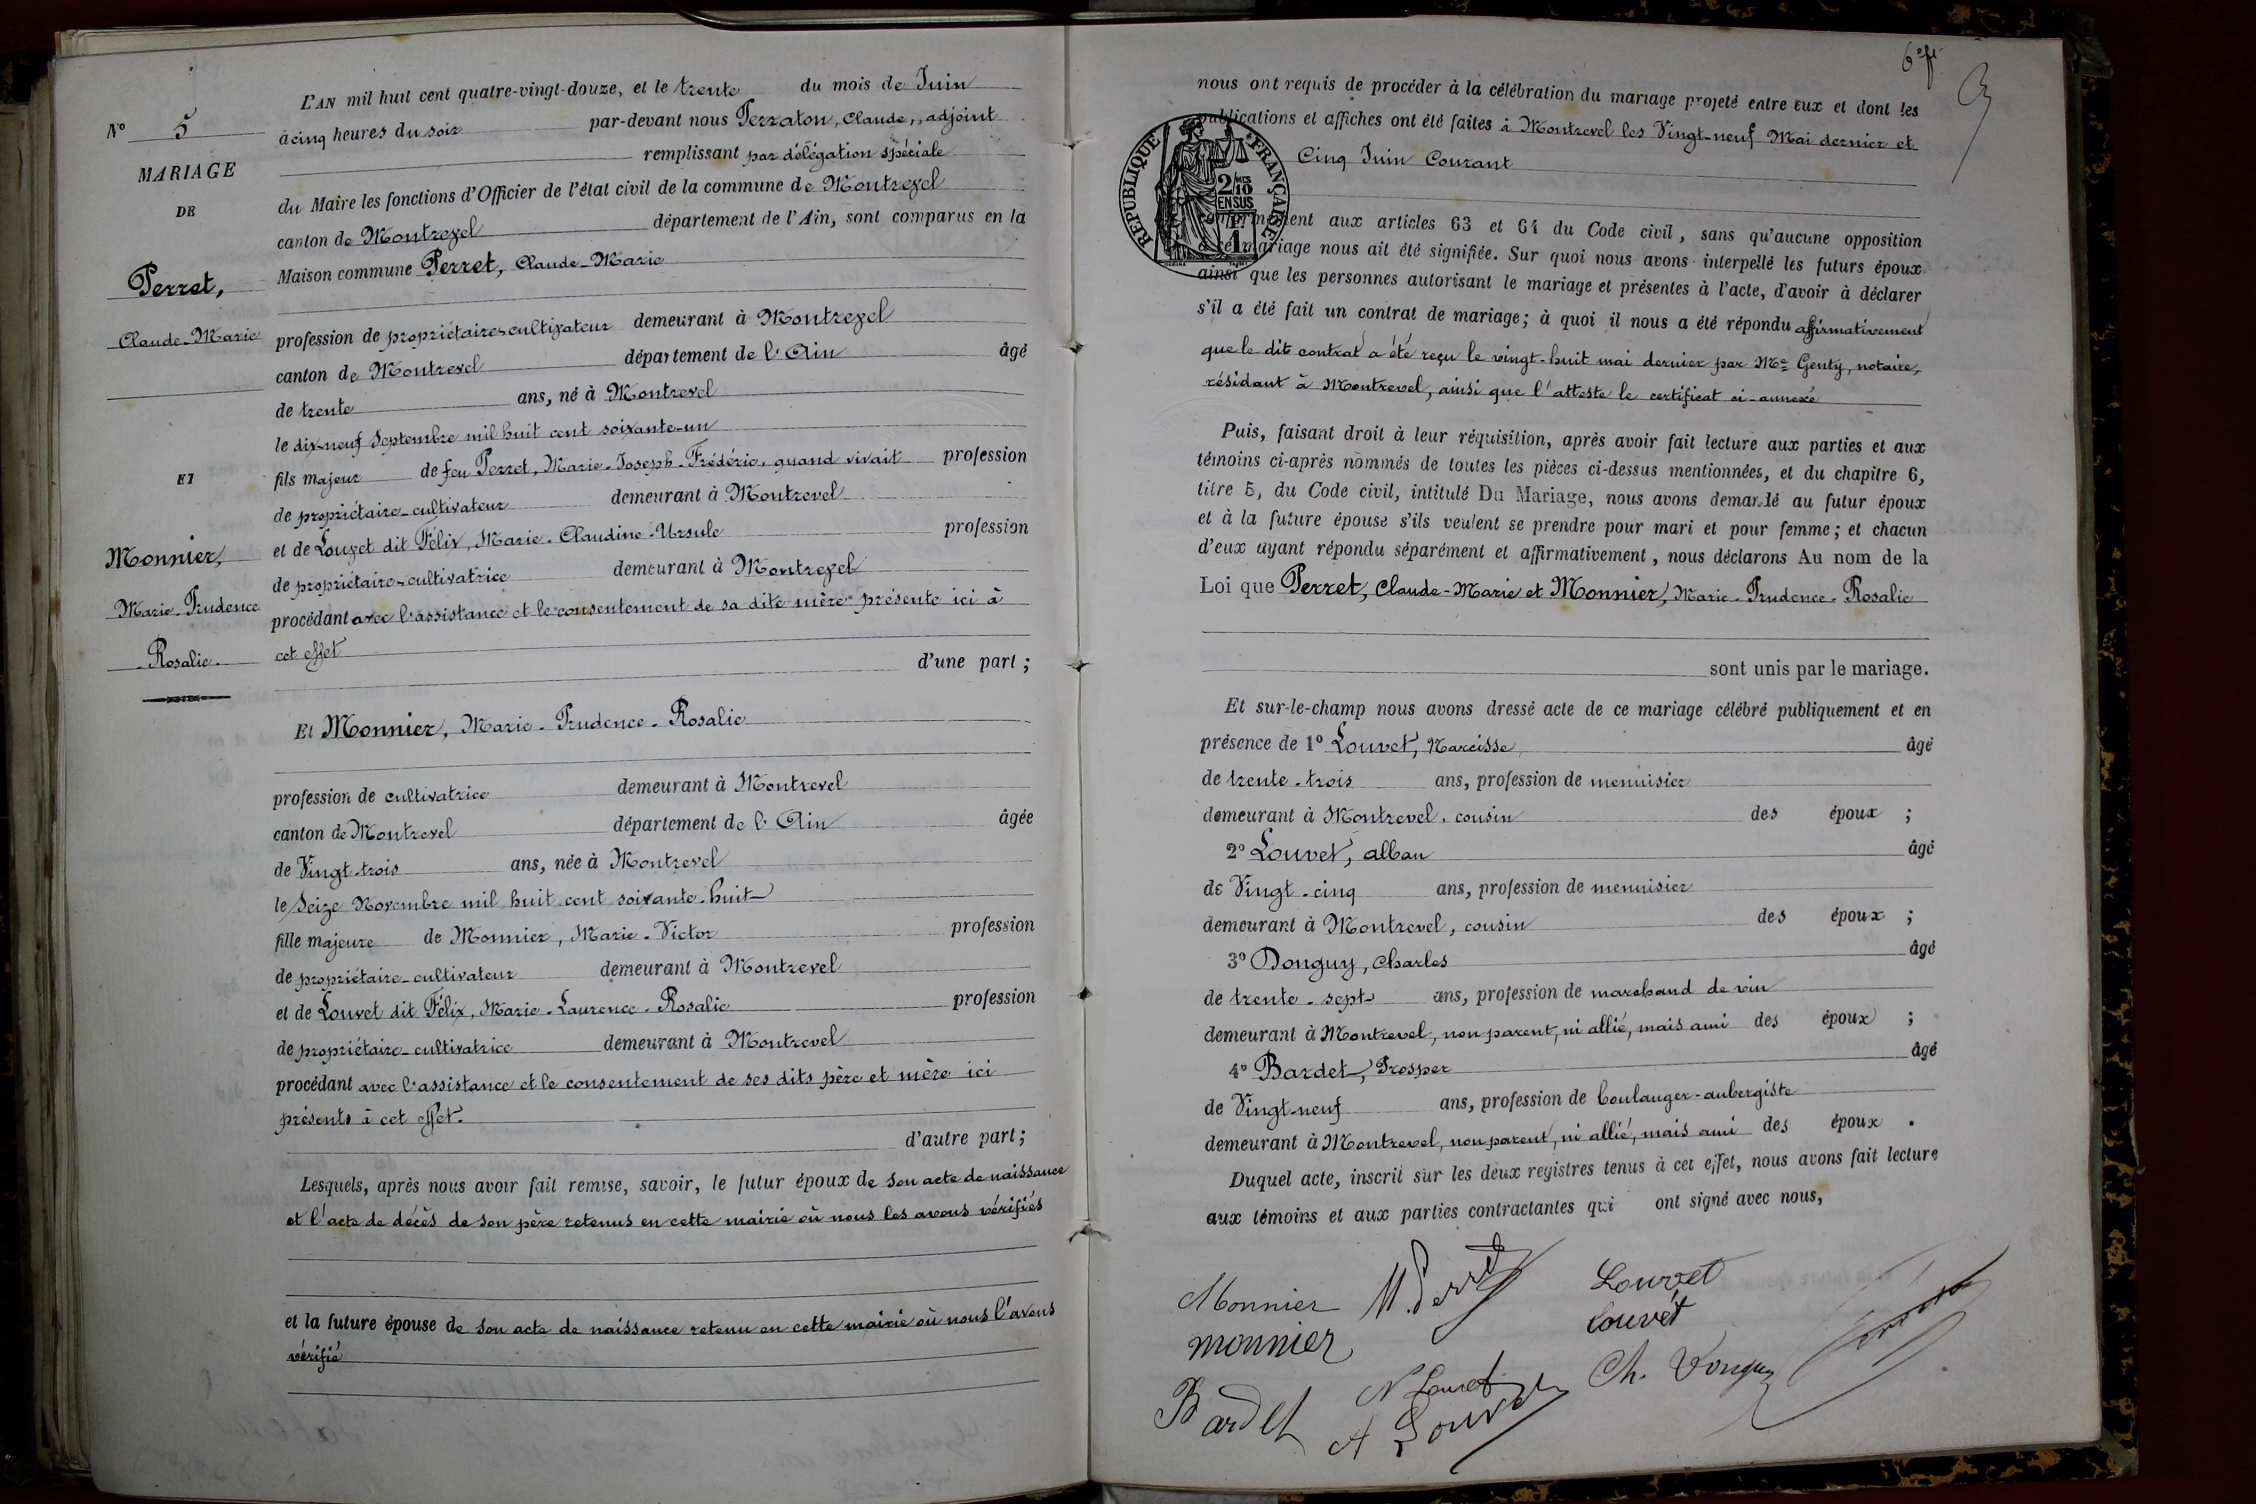 N° 5
MARIAGE
DE
Perret,
Claude-Marie
ET
Monnier,
Marie-Prudence
Rosalie.
L'AN mil huit cent quatre-vingt-douze, et le trente du mois de Juin
à cinq heures du soir par-devant nous Perraton, Claude, adjoint
remplissant par délégation spéciale
du Maire les fonctions d'Officier de l'état civil de la commune de Montrevel
canton de Montrevel département de l'Ain, sont comparus en la
Maison commune Perret, Claude-Marie
profession de propriétaire-cultivateur demeurant à Montrevel
canton de Montrevel département de l'Ain âgé
de trente ans, né à Montrevel
le dix-neuf Septembre mil huit cent soixante-un
fils majeur de feu Perret, Marie-Joseph-Frédéric, quand vivait profession
de propriétaire-cultivateur demeurant à Montrevel
et de Louvet dit Félix, Marie-Claudine-Ursule profession
de propriétaire-cultivatrice demeurant à Montrevel
procédant avec l'assistance et le consentement de sa dite mère présente ici à
cet effet
d'une part ;
Et Monnier, Marie-Prudence-Rosalie
profession de cultivatrice demeurant à Montrevel
canton de Montrevel département de l'Ain âgée
de Vingt-trois ans, née à Montrevel
le Seize Novembre mil huit cent soixante-huit
fille majeure de Monnier, Marie-Victor profession
de propriétaire-cultivateur demeurant à Montrevel
et de Louvet dit Félix, Marie-Laurence-Rosalie profession
de propriétaire-cultivatrice demeurant à Montrevel
procédant avec l'assistance et le consentement de ses dits père et mère ici
présents à cet effet.
d'autre part ;
Lesquels, après nous avoir fait remise, savoir, le futur époux de son acte de naissance
et l'acte de décès de son père retenus en cette mairie où nous les avons vérifiés
et la future épouse de son acte de naissance retenu en cette mairie où nous l'avons
vérifié
nous ont requis de procéder à la célébration du mariage projeté entre eux et dont les
publications et affiches ont été faites à Montrevel les Vingt-neuf Mai dernier et
Cinq Juin Courant
RÉPUBLIQUE FRANÇAISE
2/10 MES
EN SUS
1
conformément aux articles 63 et 64 du Code civil, sans qu'aucune opposition
à ce mariage nous ait été signifiée. Sur quoi nous avons interpellé les futurs époux
ainsi que les personnes autorisant le mariage et présentes à l'acte, d'avoir à déclarer
s'il a été fait un contrat de mariage ; à quoi il nous a été répondu affirmativement
que le dit contrat a été reçu le vingt-huit mai dernier par Me Genty, notaire,
résidant à Montrevel, ainsi que l'atteste le certificat ci-annexé
Puis, faisant droit à leur réquisition, après avoir fait lecture aux parties et aux
témoins ci-après nommés de toutes les pièces ci-dessus mentionnées, et du chapitre 6,
titre 5, du Code civil, intitulé Du Mariage, nous avons demandé au futur époux
et à la future épouse s'ils veulent se prendre pour mari et pour femme ; et chacun
d'eux ayant répondu séparément et affirmativement, nous déclarons Au nom de la
Loi que Perret, Claude-Marie et Monnier, Marie-Prudence-Rosalie
sont unis par le mariage.
Et sur-le-champ nous avons dressé acte de ce mariage célébré publiquement et en
présence de 1° Louvet, Narcisse âgé
de trente-trois ans, profession de menuisier
demeurant à Montrevel, cousin des époux ;
2° Louvet, alban âgé
de Vingt-cinq ans, profession de menuisier
demeurant à Montrevel, cousin des époux ;
3° Donguy, Charles âgé
de trente-sept ans, profession de marchand de vin
demeurant à Montrevel, non parent, ni allié, mais ami des époux ;
4° Bardet, Prosper âgé
de Vingt-neuf ans, profession de boulanger-aubergiste
demeurant à Montrevel, non parent, ni allié, mais ami des époux .
Duquel acte, inscrit sur les deux registres tenus à cet effet, nous avons fait lecture
aux témoins et aux parties contractantes qui ont signé avec nous,
Monnier M. Perret Louvet
monnier Louvet
Bardet N Louvet Ch. Donguy
A Louvet